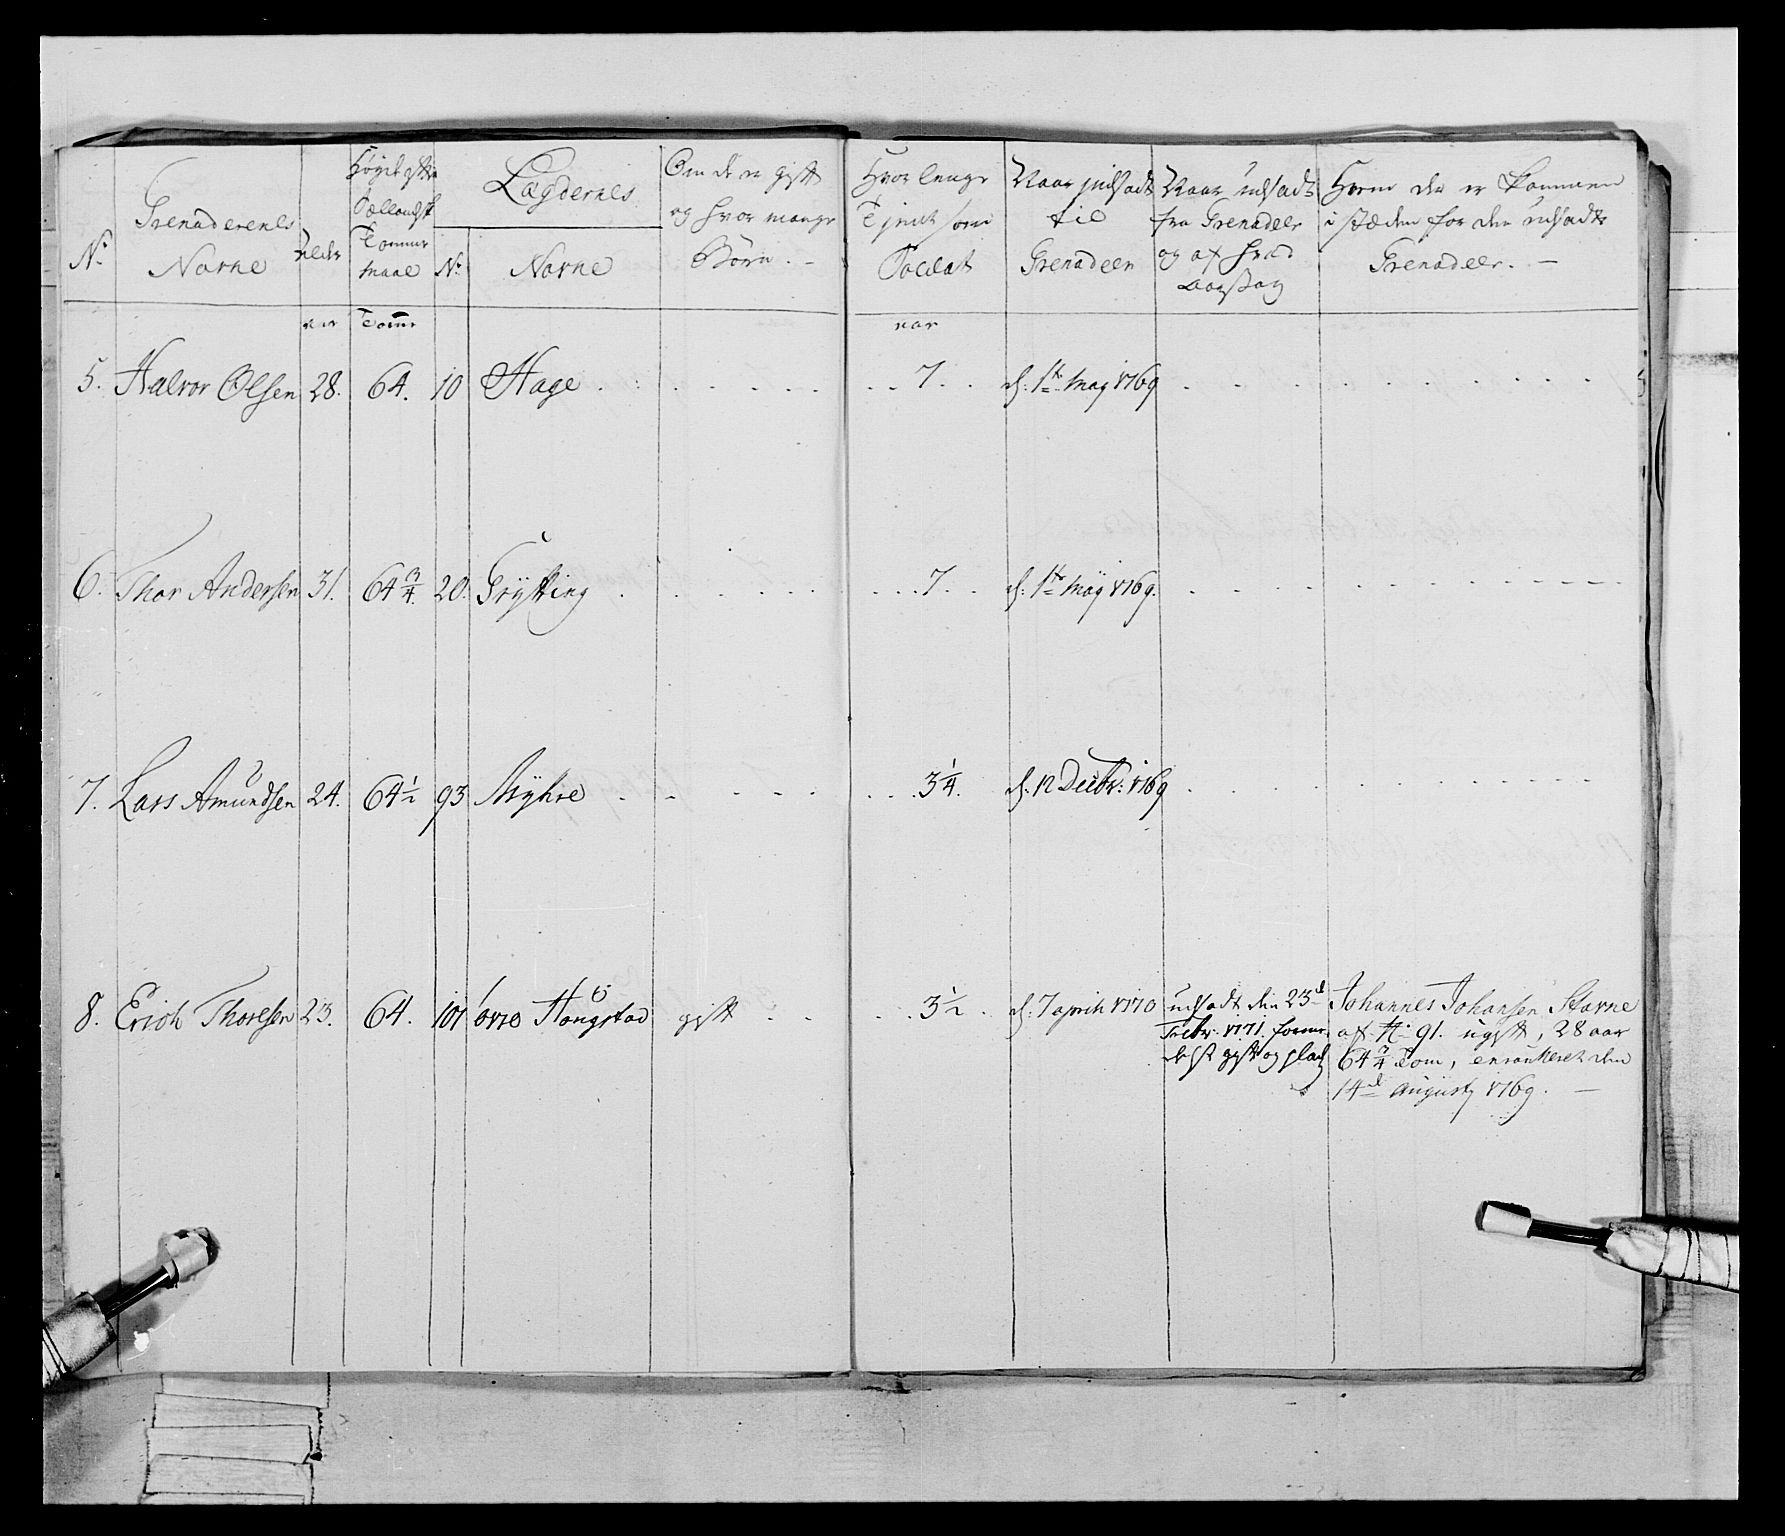 No
Grenaderenes
Navne
Alder
Høyde efter
Siællandsk
Tomme
Maal
Lægdernes
No
Navne
Om de er gift
og hvor mange
Børn. -
Hvor lenge
Tjent som
Soldat
Naar indsadt
til
Grenadeer
Naar udsadt
fra Grenadeer
og af hvad
Aarsag
Hvem der er kommen
i stæden for den udsadte
Grenadeer. -
aar Tomr aar
5. Halvor Olsen 28. 64. 10 Hage . . . . . . . . . 7. . d: 1te May 1769 . . . . . . . . .
6. Thor Andersen 31. 64 3/4. 20. Grytting . . . . . . . . . 7. . d: 1te May 1769. . . . . . . . . .
7. Lars Amundsen 24. 64 1/2 93 Myhre . . . . . . . . . 3 1/4. d. 12 Decbr: 1769 . . . . . . . . .
8. Erich Thoresen 23. 64. 101 Hougstad gift . . . . 3 1/2 . d. 7 april 1770
udsadt den 23d
1771.
gift og
Johannes Johansen Starne
af No 91. ugift, 28 aar
64 3/4 Tom, enrouleret den
14d Augusty 1769. -